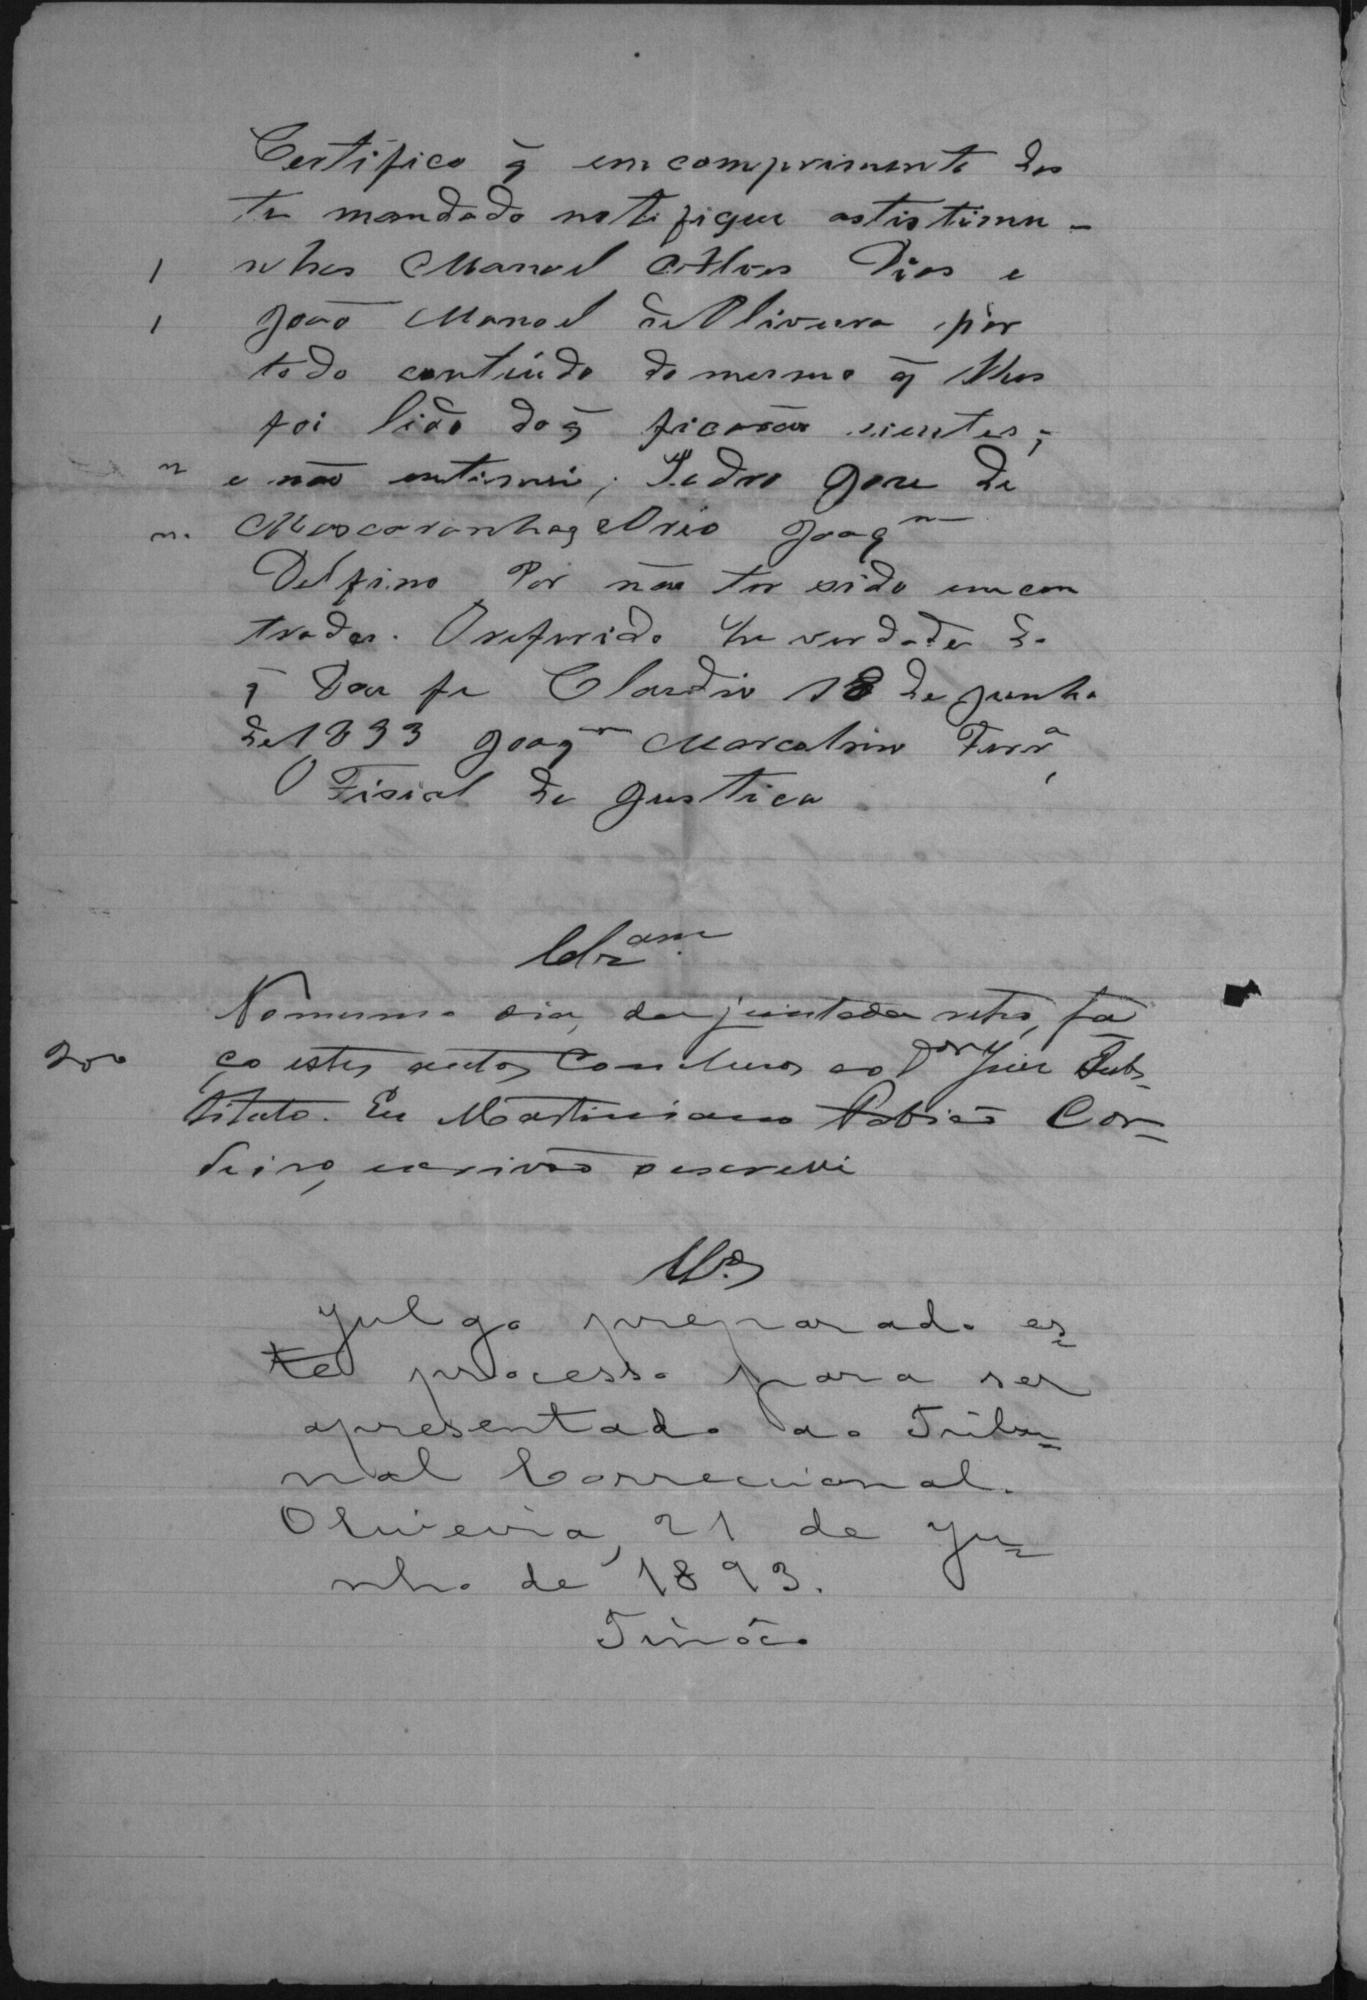 Certifico q̃ em comprimento des
te mandado notifique astistimu-
1 nhas Manoel Alves Dias e
1 João Manoel de Oliveira por
todo contiúdo do mesmo q̃ lhes
foi lido do q̃ ficarão cientes;
n e não entimei, Pedro Jose de
n. Mascaranhas Joaqm
Delfino Por não ter sido emcon
trados. O referido he verdade do
q̃ Dou fe Claudio 18 de junho
de 1893 Joaqm Marcolino Ferrª,
O Fisial de Justica.
Clzam.
No mesmo dia, da juntada retro, fa
200 ço estes autos Conclusos ao Dor Juiz Subs-
tituto. Eu Martiniano Cor-
deiro, escrivão o escrevi
Clos
Julgo preparado es-
te processo para ser
apresentado ao Tribu-
nal Correccional.
Oliveira, 21 de Ju-
nho de 1893.
Tinôco